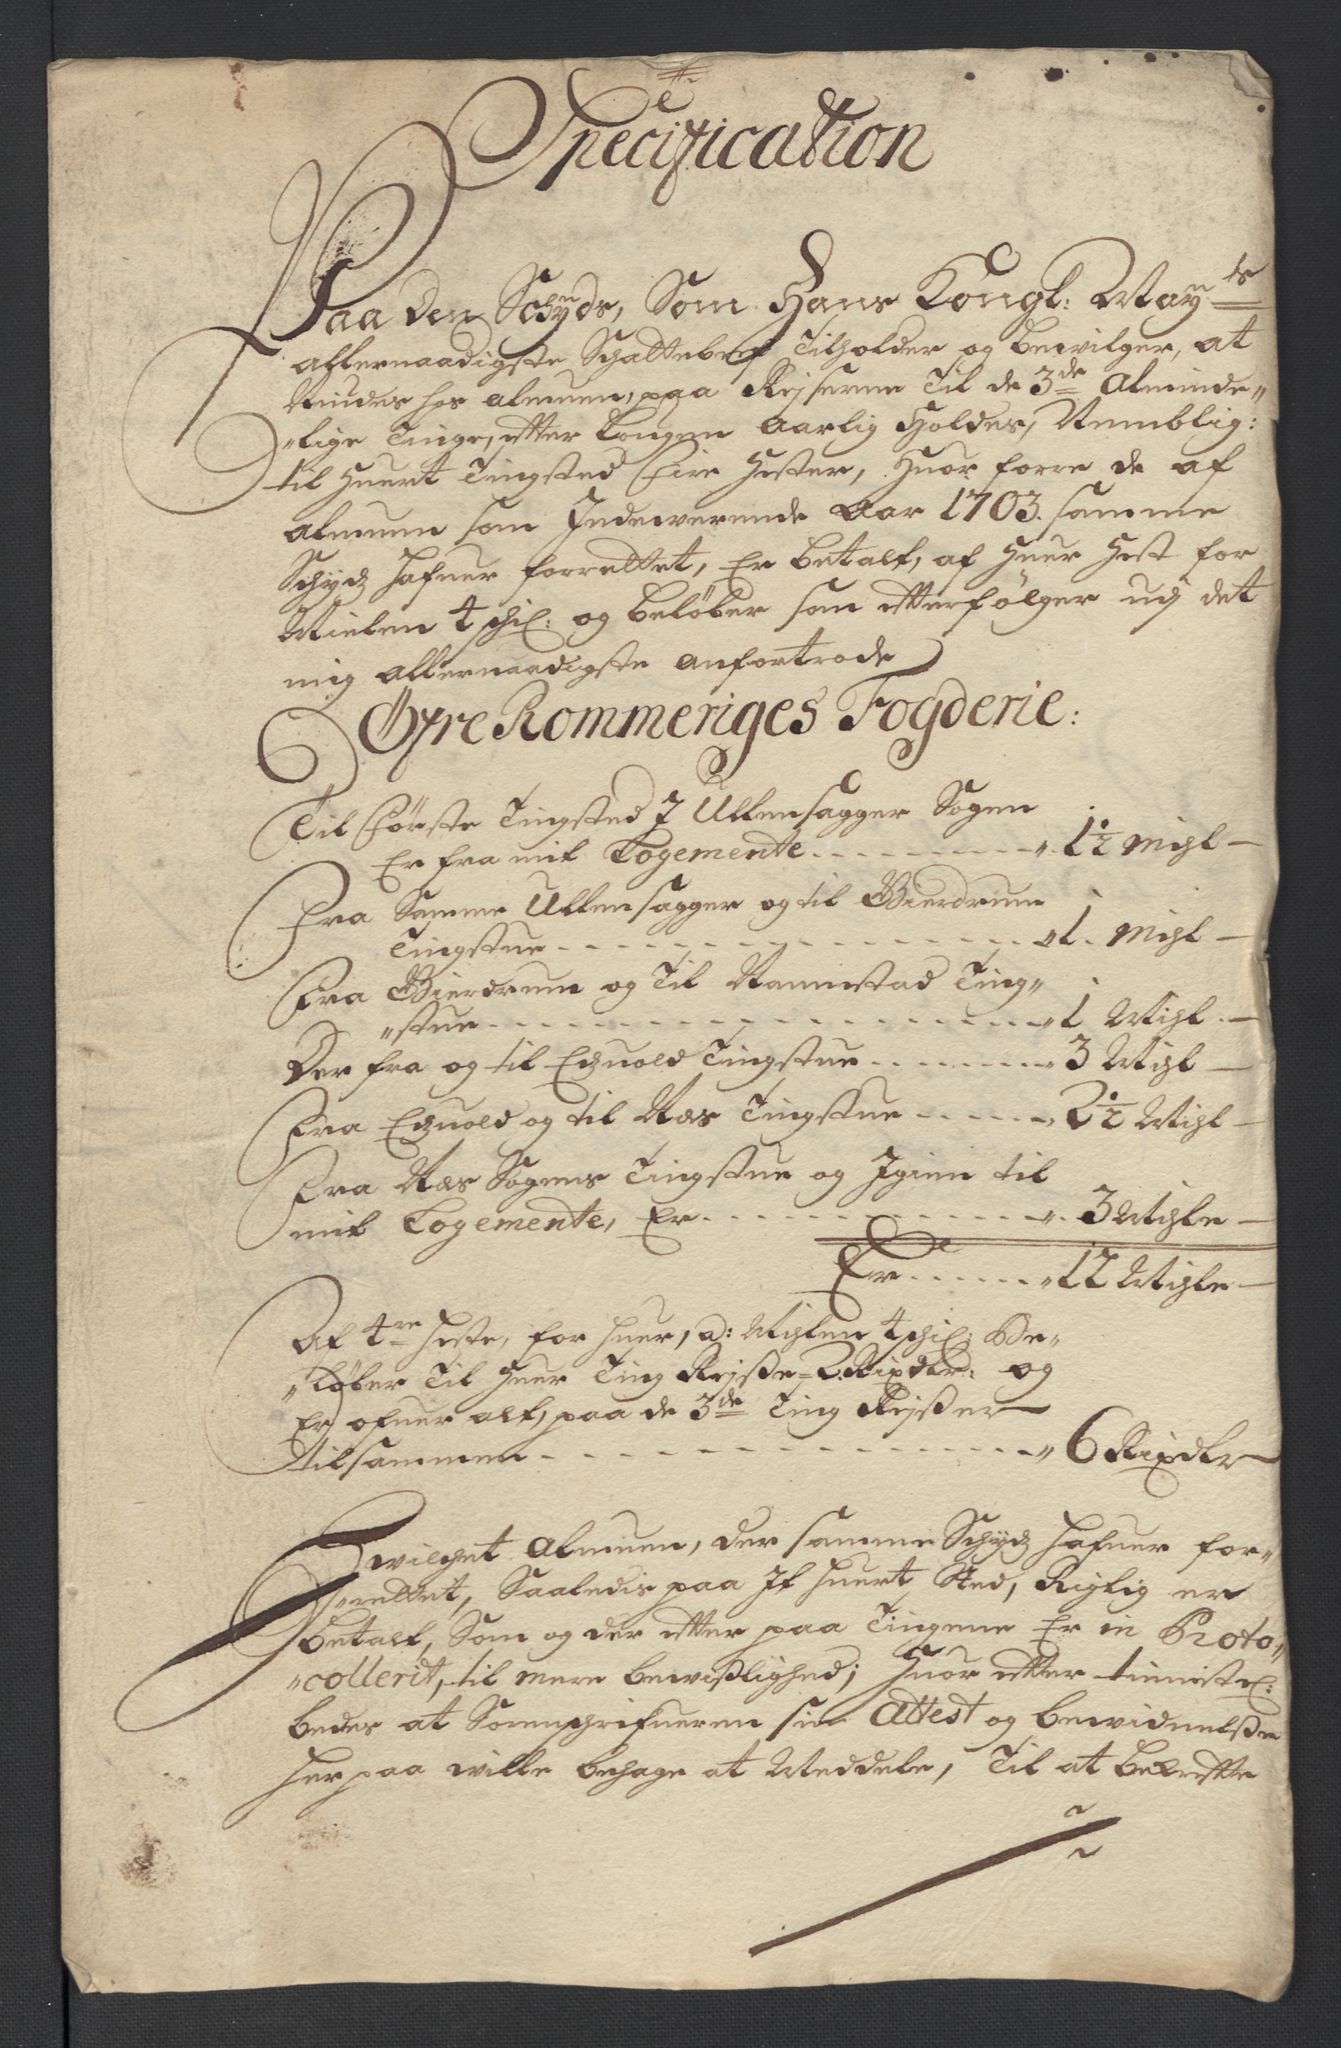 Specification
Paa den Schyds, Som Hans Kongl: May:ts
allernaadigste Schattebref Tilholder og bevilger, at
Nÿdes hos almuen, paa Rejserne til de 3de Alminde„
„lige Tinge, efter Lougen Aarlig Holdes, Nemblig:
til Huert Tingsted Fire Hester, Huor forre de af
almuen som Indeverende Aar 1703. samme
Schydz hafuer forrettet, Er betalt, af Huer Hest for
Miilen 4 sch: og beløber som efterfølger udj det
mig allernaadigste anfortrode
Øfre Rommeriges Fogderie:
Til Første Tingsted J Ullensagger Sogen
Er fra mit Logemente - - - „ 1½ Mihl
Fra Samme Ullensagger og til Gierdrum
Tingstue - - - „1. Mihl
Fra Gierdrum og Til Nannestad Ting„
„stue - - - „1 Mihl
Der fra og til Edzuold Tingstue - - - „ 3 Mihl
Fra Edzuold og til Næs Tingstue - - - „ 2½ Mihl
Fra Næs Sogens Tingstue og Igien til
mit Logemente, Er - - - „ 3 Mihle
Er - - - „ 12 Mihle
Af 4re Heste, for Huer, a: Mihlen 4 sch: Be„
„løber til Huer Ting Rejsse = 2. Rixdlr: og
Er ofuer alt, paa de 3de Ting Rejsser
tilsammen - - - „ 6 Rixdlr
Hvilchet Almuen, der samme Schydz hafuer for„
„rettet, Saaledis paa It huert Sted, Rigtig er
betalt, Som og der efter paa Tingene Er in Proto„
„collerit, til mere bevisslighed; Huor efter tienistl:
bedes at Sorenschrifueren sin Attest og bevidnelsse
her paa wille behage at Meddele, Til at bekrefte